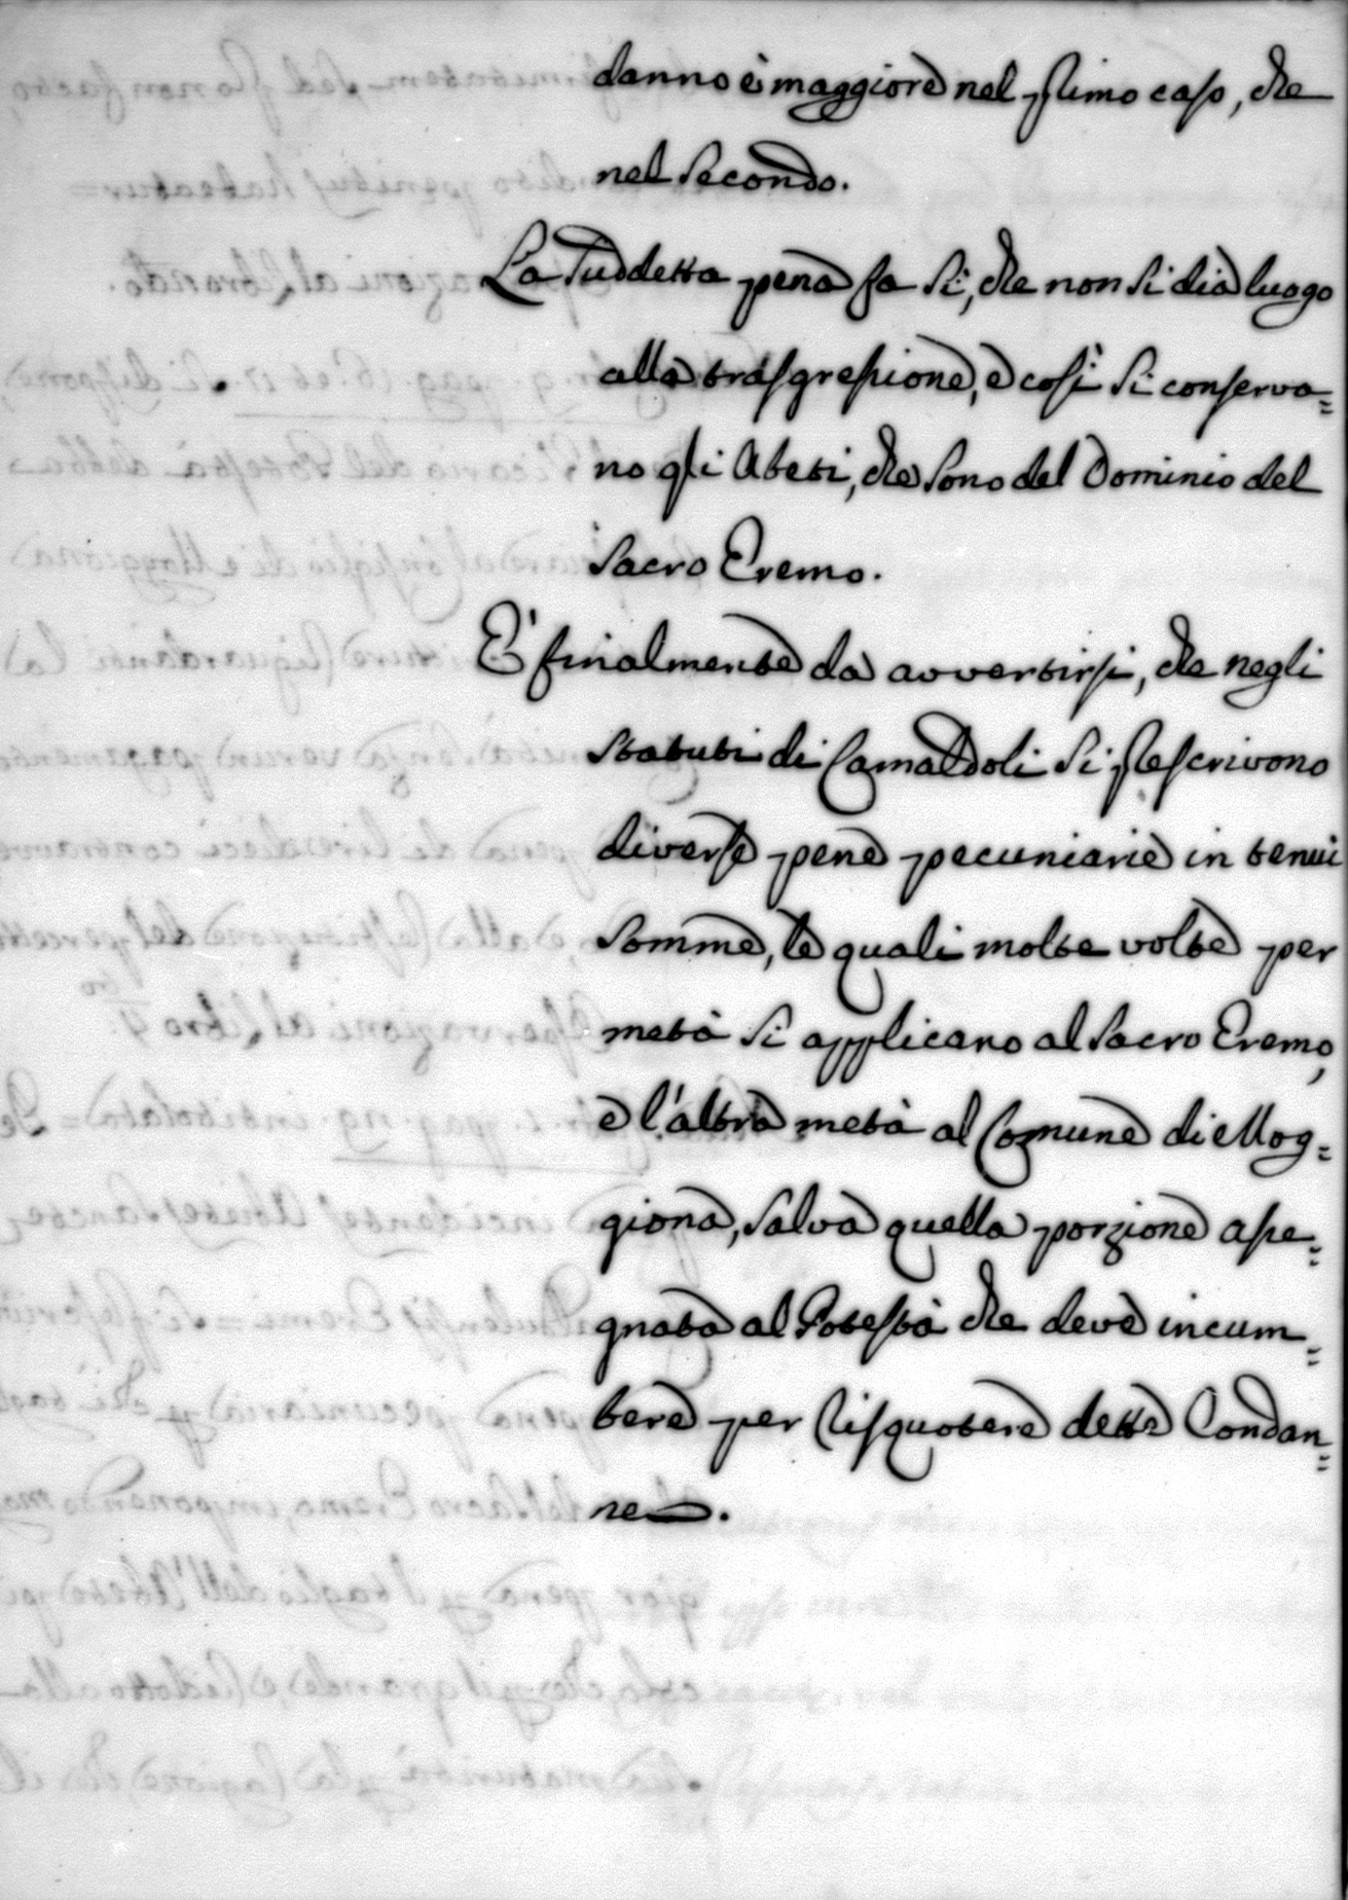 danno è maggiore nel primo caso, che
nel secondo.
La suddetta pena fa si, che non si dia luogo
alla trasgressione, e così si conserva=
no gli Abeti, che sono del Dominio del
Sacro Eremo.
E' finalmente da avvertirsi, che negli
Statuti di Camaldoli si prescrivono
diverse pene pecuniarie in tenui
somme, le quali molte volte per
metà si applicano al Sacro Eremo,
e l'altra metà al Comune di Mog=
giona, salva quella porzione asse=
gnata al Potestà che deve incum=
bere per risquotere dette Condan=
ne.